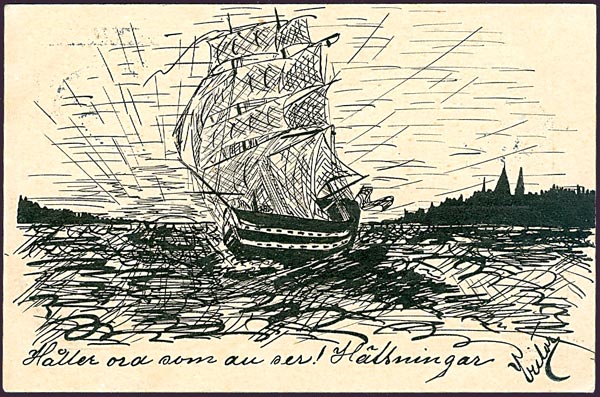 Håller ord som du ser! Hälsningar